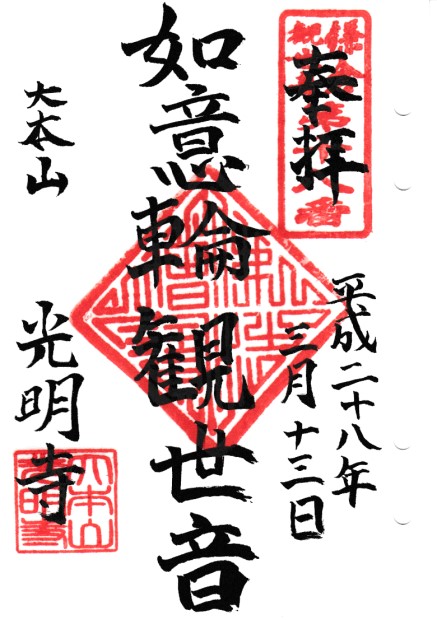 奉拝
平成二十八年
三月十三日
如意輪観世音
大本山
光明寺
大本山
光明寺